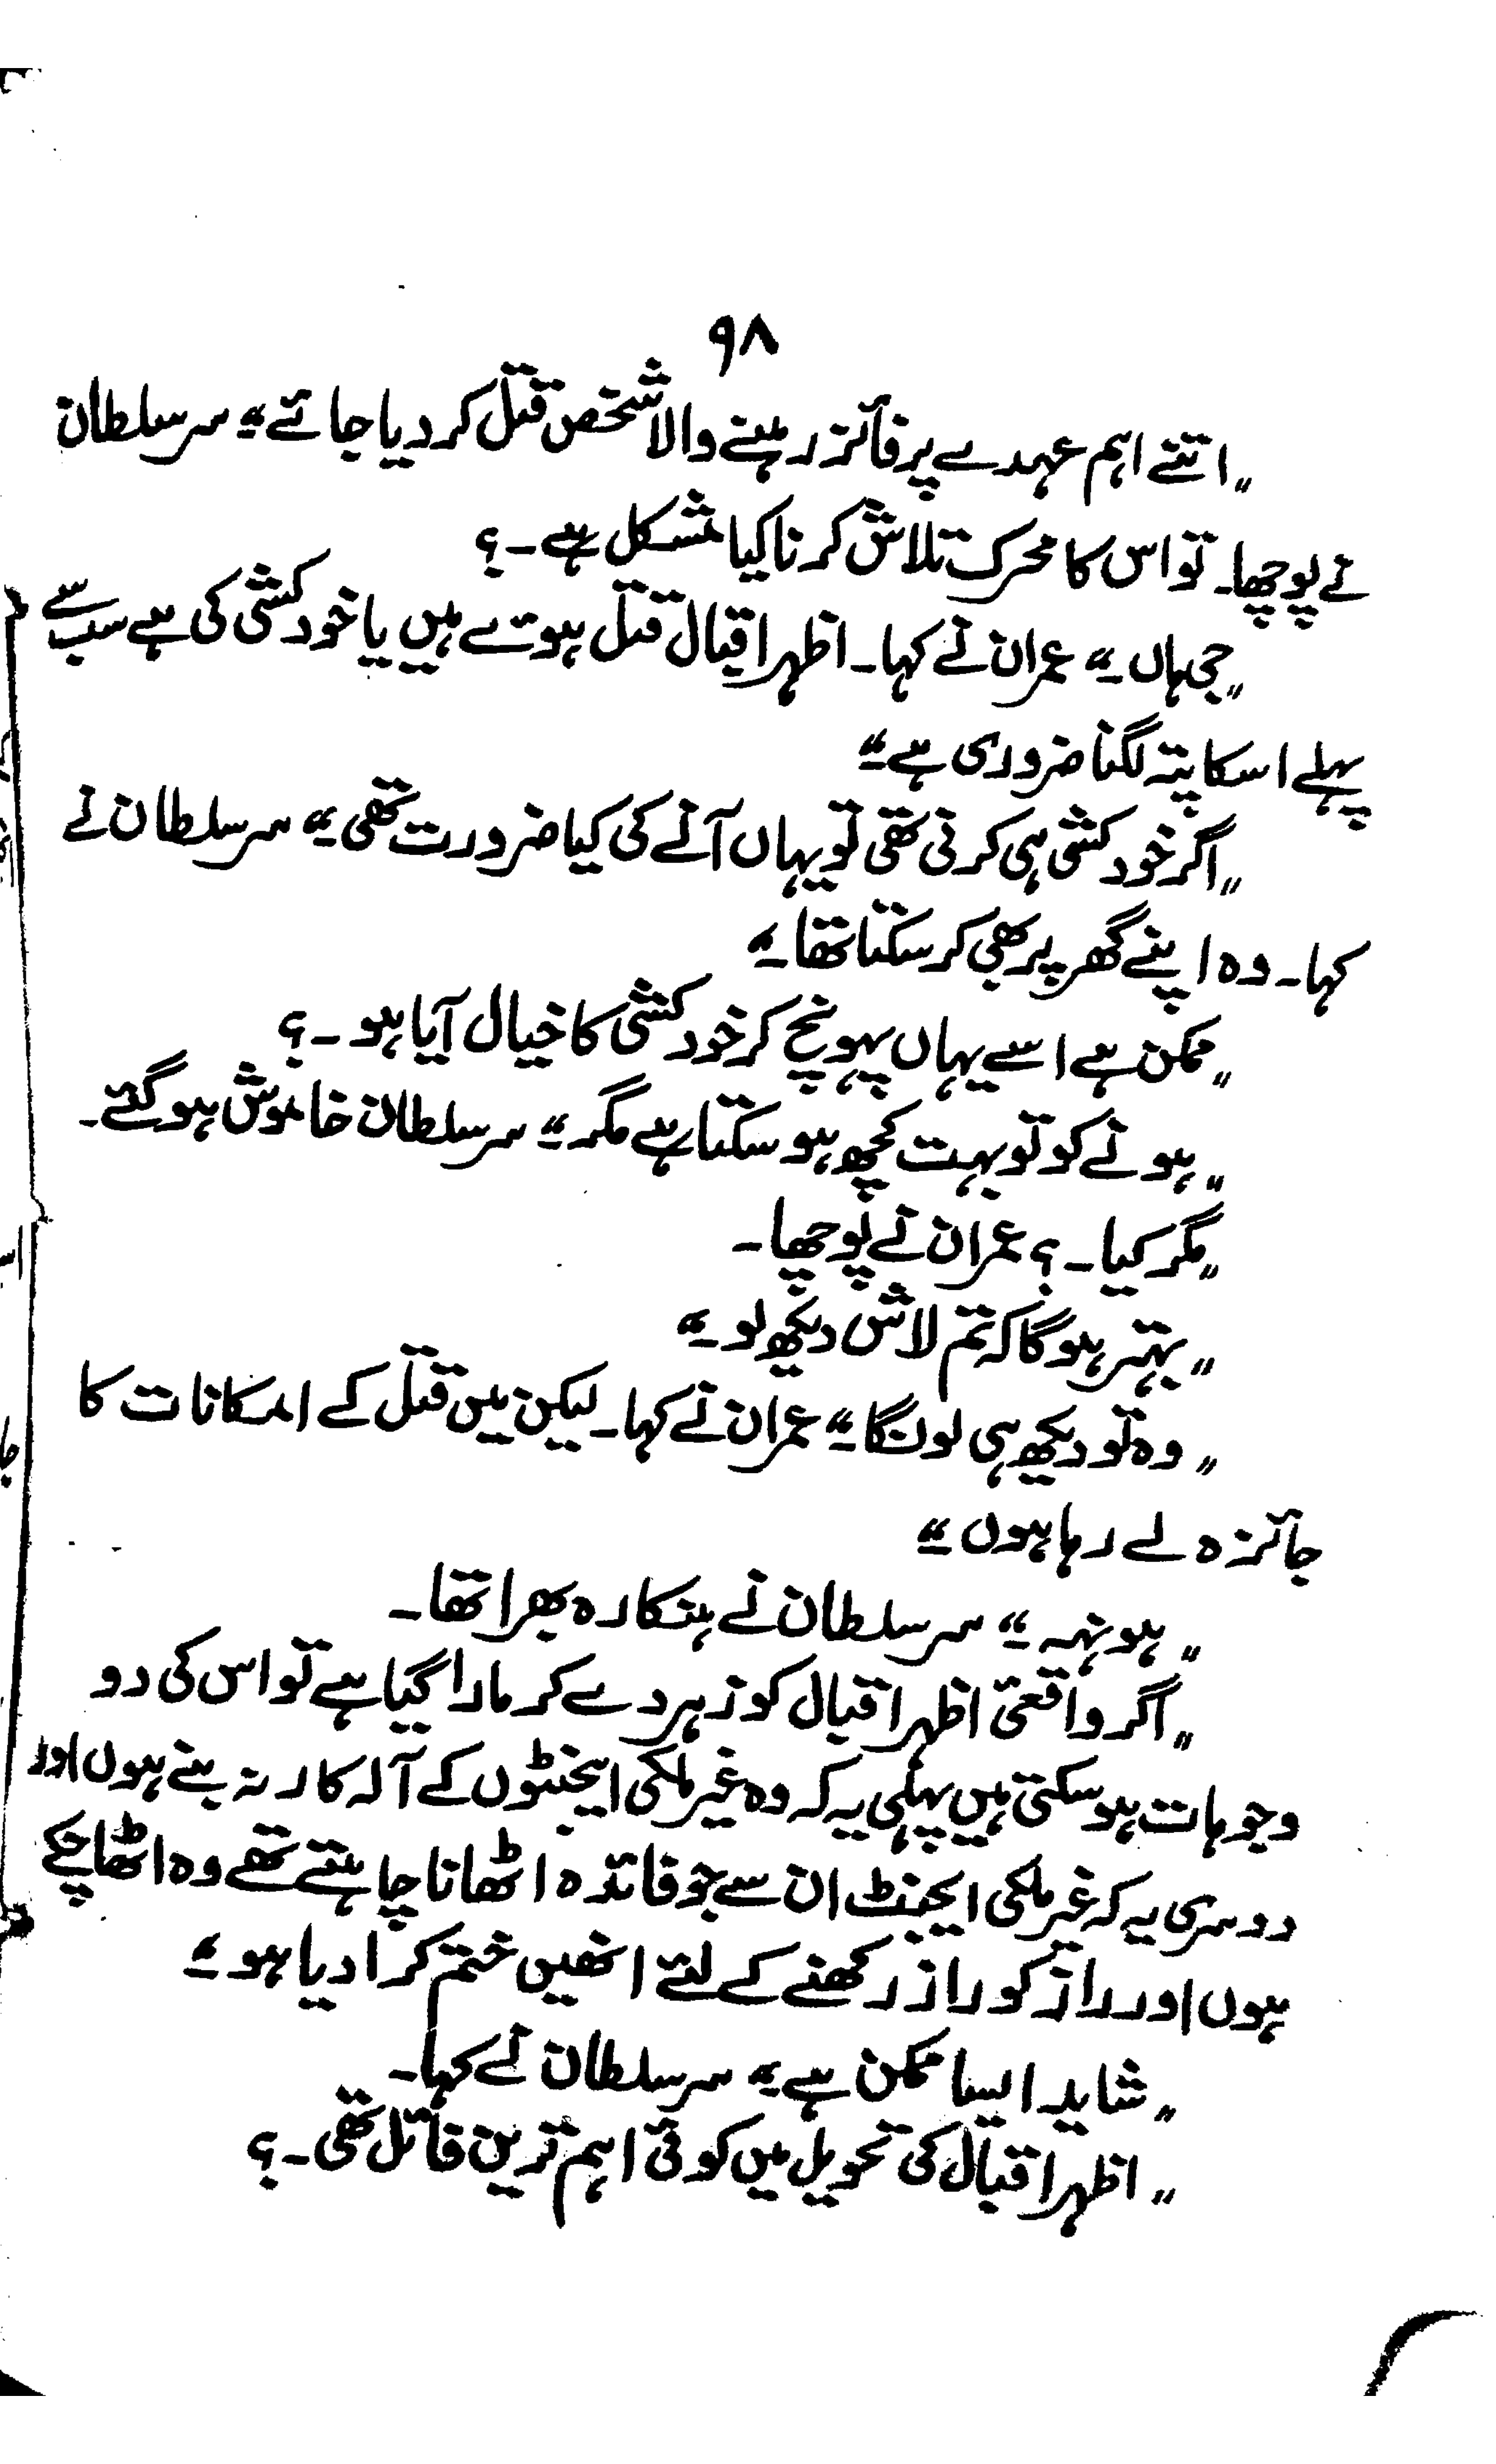 ۹۸
"اتنے اہم عہدے پر فائز رہنے والا شخص قتل کر دیا جائے۔" سر سلطان
نے پوچھا۔ تو اس کا محرک تلاش کرنا کیا مشکل ہے۔؟
"جی ہاں۔" عمران نے کہا۔ اظہر اقبال قتل ہوئے ہیں یا خودکشی کی ہے سب سے
پہلے اسکا پتہ لگنا ضروری ہے۔"
"اگر خودکشی ہی کرنی تھی تو یہاں آنے کی کیا ضرورت تھی۔" سر سلطان نے
کہا۔ وہ اپنے گھر پر بھی کر سکتا تھا۔"
"ممکن ہے اسے یہاں پہونچ کر خودکشی کا خیال آیا ہو۔؟
"ہونے کو تو بہت کچھ ہو سکتا ہے مگر۔" سر سلطان خاموش ہو گئے۔
"مگر کیا۔؟ عمران نے پوچھا۔
"بہتر ہو گا کہ تم لاش دیکھ لو۔"
"وہ تو دیکھ ہی لونگا۔" عمران نے کہا۔ لیکن میں قتل کے امکانات کا
جائزہ لے رہا ہوں۔"
"ہونہہ۔" سر سلطان نے ہنکارہ بھرا تھا۔
"اگر واقعی اظہر اقبال کو زہر دے کر مارا گیا ہے تو اس کی دو
وجوہات ہو سکتی ہیں پہلی یہ کہ وہ غیر ملکی ایجنٹوں کے آلہ کار نہ بنے ہوں اور
دوسری یہ کہ غیر ملکی ایجنٹ ان سے جو فائدہ اٹھانا چاہتے تھے وہ اٹھا چکے
ہوں اور راز کو راز رکھنے کے لئے انھیں ختم کرا دیا ہو۔"
"شاید ایسا ممکن ہے۔" سر سلطان نے کہا۔
"اظہر اقبال کی تحویل میں کوئی اہم ترین فائل تھی۔؟